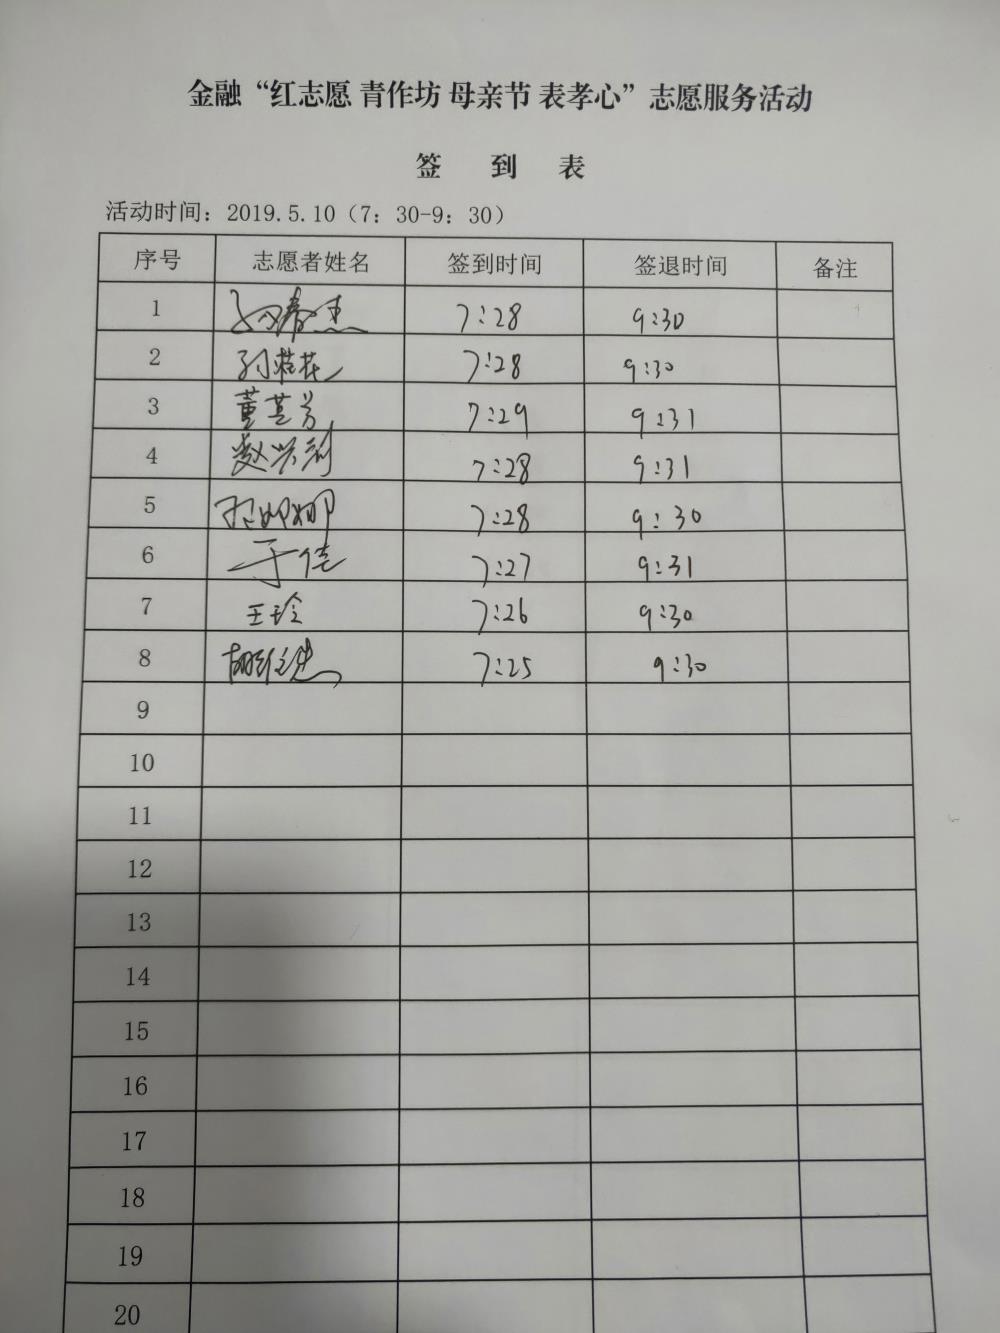 金融“红志愿 青作坊 母亲节 表孝心”志愿服务活动
签 到 表
活动时间：2019.5.10（7：30-9：30）
序号 志愿者姓名 签到时间 签退时间 备注
1 7:28 9:30
2 孙桂花 7:28 9:30
3 董其芳 7:29 9:31
4 赵兴利 7:28 9:31
5 娜娜 7:28 9:30
6 于佳 7:27 9:31
7 王玲 7:26 9:30
8 7:25 9:30
9
10
11
12
13
14
15
16
17
18
19
20